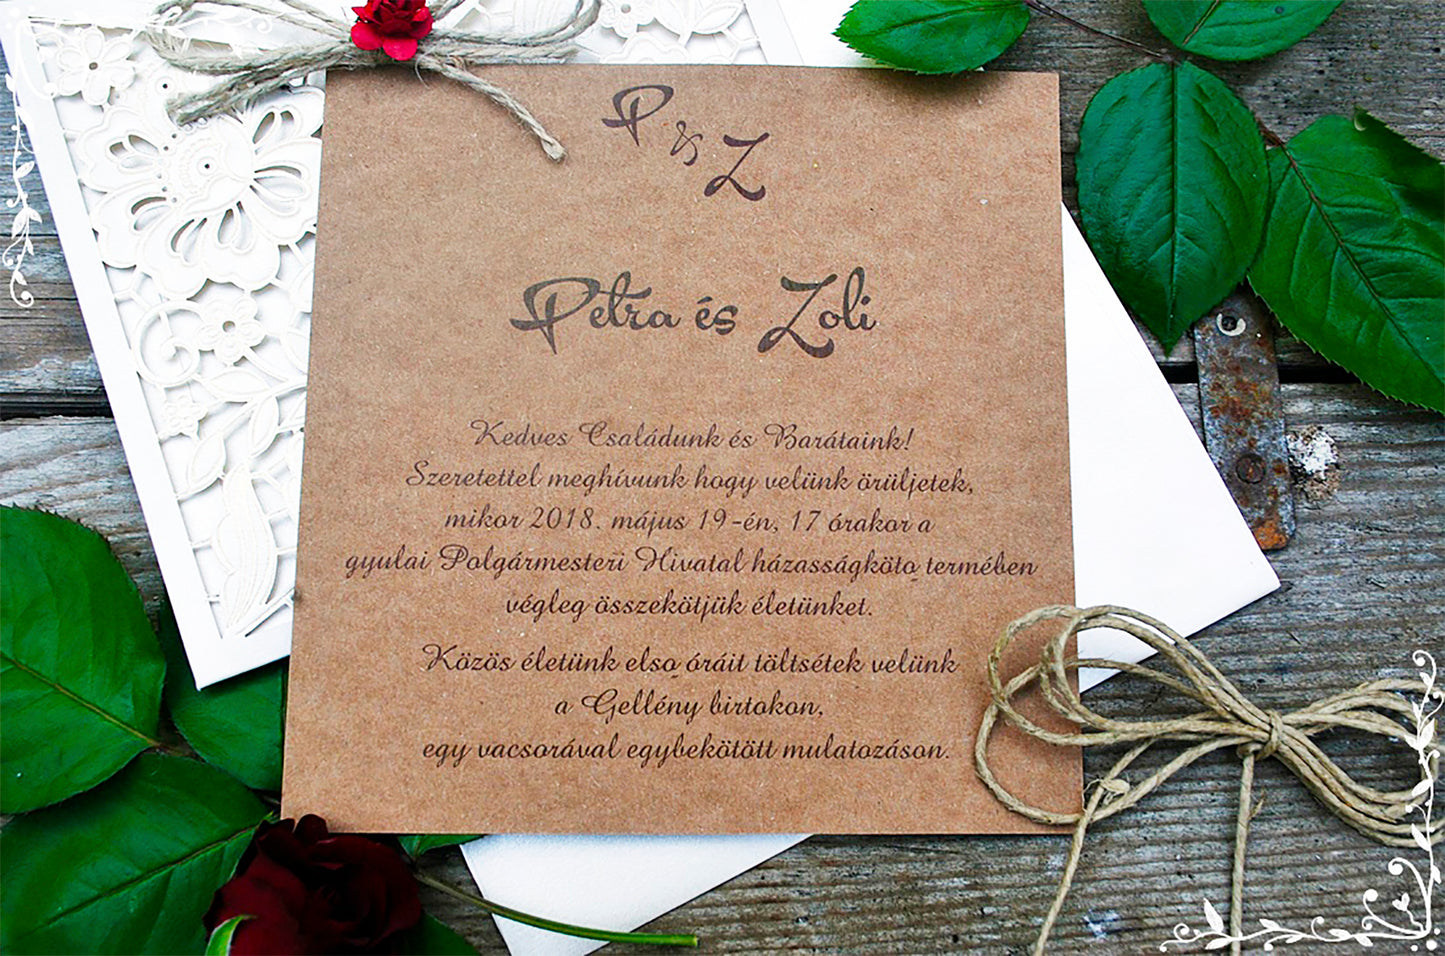 P & Z
Petra és Zoli
Kedves Családunk és Barátaink!
Szeretettel meghívunk hogy velünk örüljetek,
mikor 2018. május 19-én, 17 órakor a
gyulai Polgármesteri Hivatal házasságköto termében
végleg összekötjük életünket.
Közös életünk elso óráit töltsétek velünk
a Gellény birtokon,
egy vacsorával egybekötött mulatozáson.